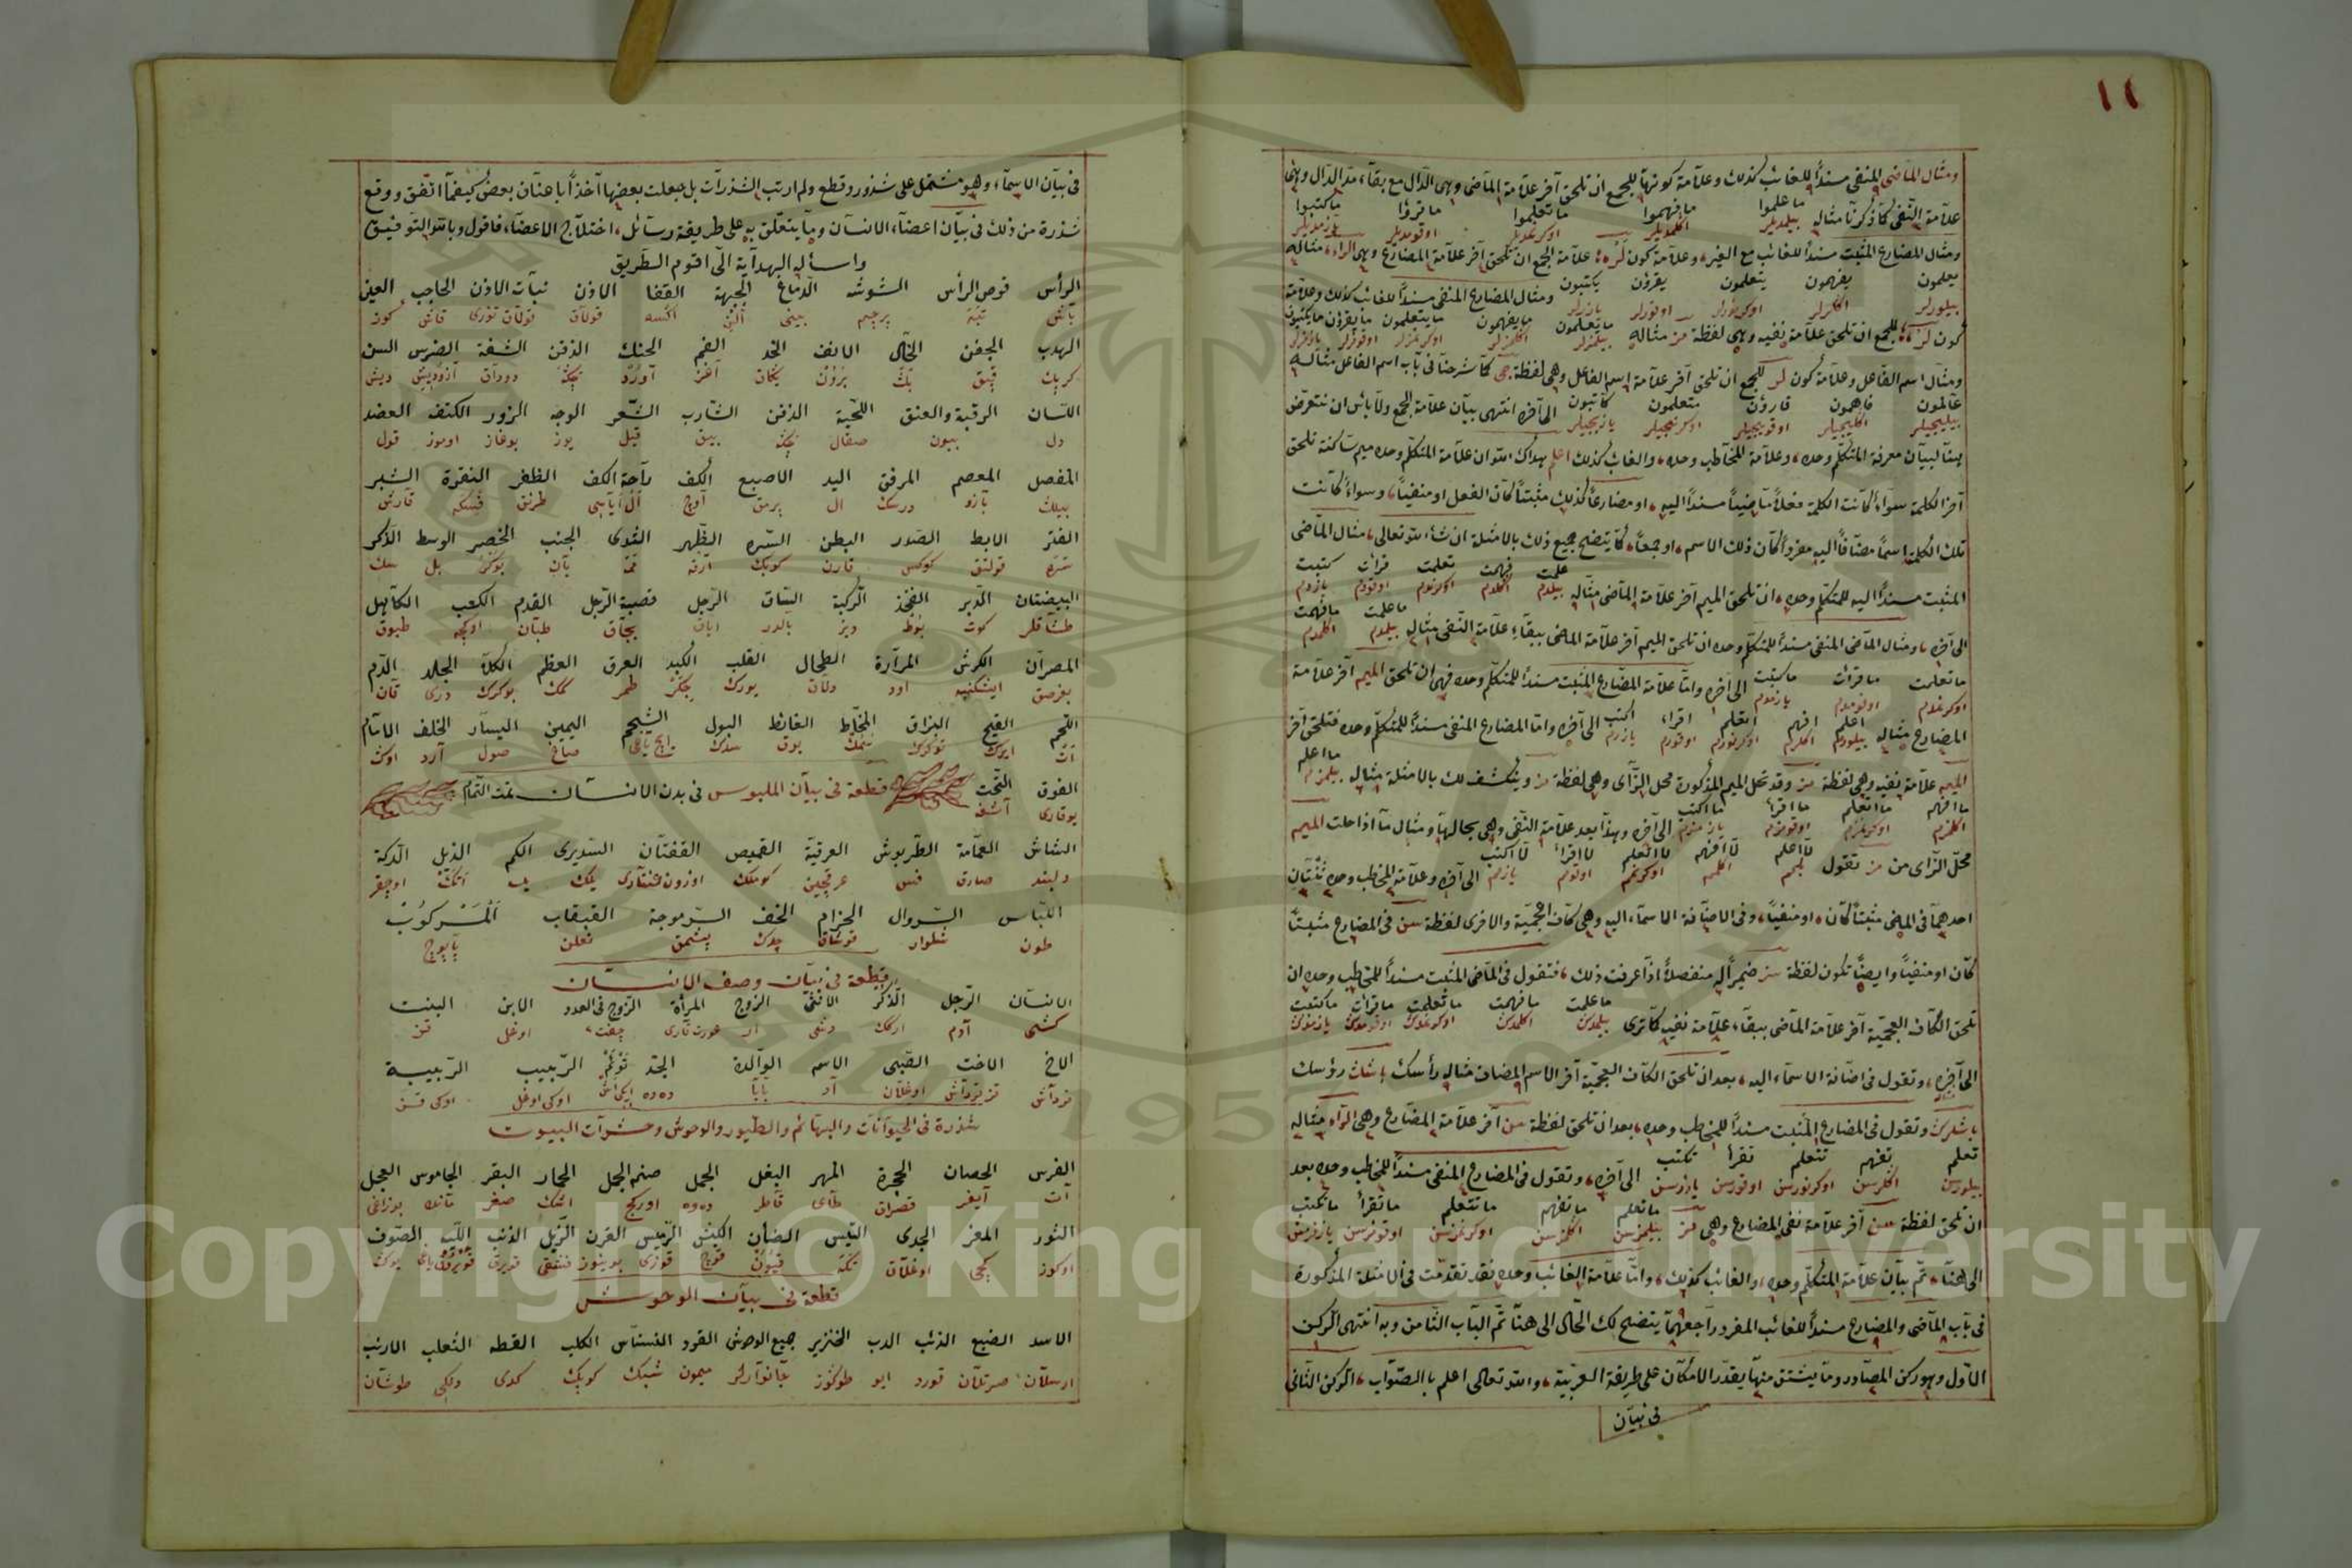 ١١
ومثال الماضى المنفى مسنداً للغائب كذلك وعلامة كونها للجمع ان تلحق آخر علامة الماضى وهى الدال مع بقاء مد الدال وهى
علامة النفى كما ذكرنا مثاله ما علموا ما فهموا ما تعلموا ما قرؤا ما كتبوا
بيلمديلر اكلمديلر اوكرنمديلر اوقومديلر يازمديلر
ومثال المضارع المثبت مسنداً للغائب مع الغير وعلامة كون لر علامة الجمع ان تلحق آخر علامة المضارع وهى الراء مثاله
يعلمون يفهمون يتعلمون يقرؤن يكتبون ومثال المضارع المنفى مسنداً للغائب كذلك وعلامة
بيلورلر اكلرلر اوكرنورلر اوقورلر يازرلر
كون لر للجمع ان تلحق علامة نفيه وهى لفظة مز مثاله ما يعلمون ما يفهمون ما يتعلمون ما يقرؤن ما يكتبون
بيلمزلر اكلمزلر اوكرنمزلر اوقومزلر يازمزلر
ومثال اسم الفاعل وعلامة كون لر للجمع ان تلحق آخر علامة اسم الفاعل وهى لفظة جى كما شرحنا فى باب اسم الفاعل مثاله
عالمون فاهمون متعلمون قارؤن كاتبون الى آخره انتهى بيان علامة الجمع ولا بأس ان نتعرض
بيليجيلر اكليجيلر اوكرنيجيلر اوقوييجيلر يازيجيلر
هنا لبيان معرفة المتكلم وحده وعلامة المخاطب وحده والغائب كذلك اعلم هداك الله ان علامة المتكلم وحده ميم ساكنة تلحق
آخر الكلمة سواء كانت الكلمة فعلاً ماضياً مسنداً اليه او مضارعاً كذلك مثبتاً كان الفعل او منفياً وسواء كانت
تلك الكلمة اسماً مضافاً اليه مفرداً كان ذلك الاسم او جمعاً كما يتضح جميع ذلك بالامثلة ان شاء الله تعالى مثال الماضى
المثبت مسنداً اليه للمتكلم وحده ان تلحق الميم آخر علامة الماضى مثاله علمت فهمت تعلمت قرأت كتبت
بيلدم اكلدم اوكرندم اوقودم يازدم
الى آخره ومثال الماضى المنفى مسنداً للمتكلم وحده ان تلحق الميم آخر علامة الماضى ببقاء علامة النفى مثاله ما علمت ما فهمت
بيلمدم اكلمدم
ما تعلمت ما قرأت ما كتبت الى آخره واما علامة المضارع المثبت مسنداً للمتكلم وحده فهى ان تلحق الميم آخر علامة
اوكرنمدم اوقومدم يازمدم
المضارع مثاله اعلم افهم اتعلم اقراء اكتب الى آخره واما المضارع المنفى مسنداً للمتكلم وحده فتلحق آخر
بيلورم اكلرم اوكرنورم اوقورم يازرم
الميم علامة نفيه وهى لفظة مز وقد تحل الميم المذكورة محل الزاى وهى لفظة مز وينكشف لك بالامثلة مثاله ما اعلم
بيلمزم
ما افهم ما اتعلم ما اقرأ ما اكتب الى آخره وهذا بعد علامة النفى وهى بحالها ومثال ما اذا حلت الميم
اكلمزم اوكرنمزم اوقومزم يازمزم
محل الزاى من مز تقول لا اعلم لا افهم لا اتعلم لا اقرأ لا اكتب الى آخره وعلامة المخاطب وحده ثنتان
بيلمم اكلمم اوكرنمم اوقومم يازمم
احدهما فى الماضى مثبتاً كان او منفياً وفى الاضافة الاسماء اليه وهى كاف العجمية والاخرى لفظة سن فى المضارع مثبتاً
كان او منفياً وايضاً تكون لفظة سن ضميراً له منفصلاً اذا عرفت ذلك فتقول فى الماضى المثبت مسنداً للمخاطب وحده ان
تلحق الكاف العجمية آخر علامة الماضى ببقاء علامة نفيه كما ترى ما علمت ما فهمت ما تعلمت ما قرأت ما كتبت
بيلمدك اكلمدك اوكرنمدك اوقومدك يازمدك
الى آخره وتقول فى اضافة الاسماء اليه بعد ان تلحق الكاف العجمية آخر الاسم المضاف مثاله رأسك باشك رؤسك
باشلرك وتقول فى المضارع المثبت مسنداً للمخاطب وحده بعد ان تلحق لفظة سن آخر علامة المضارع وهى الراء مثاله
تعلم تفهم تتعلم تقرأ تكتب الى آخره وتقول فى المضارع المنفى مسنداً للمخاطب وحده بعد
بيلورسن اكلرسن اوكرنورسن اوقورسن يازرسن
ان تلحق لفظة سن آخر علامة نفى المضارع وهى مز ما تعلم ما تفهم ما تتعلم ما تقرأ ما تكتب
بيلمزسن اكلمزسن اوكرنمزسن اوقومزسن يازمزسن
الى هنا تم بيان علامة المتكلم وحده والغائب كذلك واما علامة الغائب وحده فقد تقدمت فى الامثلة المذكورة
فى باب الماضى والمضارع مسنداً للغائب المفرد راجعها يتضح لك الحال الى هنا تم الباب الثامن وبه انتهى الركن
الاول وهو ركن المصادر وما يشتق منها بقدر الامكان على طريقة العربية والله تعالى اعلم بالصواب الركن الثانى
فى بيان
فى بيان الاسماء وهو مشتمل على شذور وقطع ولم ارتب الشذرات بل جعلت بعضها آخذاً باعنان بعض كيفما اتفق ووقع
شذرة من ذلك فى بيان اعضاء الانسان وما يتعلق به على طريقة رسائل اختلاج الاعضاء فاقول وبالله التوفيق
واسأله الهداية الى اقوم الطريق
الرأس قوص الرأس الشوشه الدماغ الجبهة القفا الاذن نبات الاذن الحاجب العين
باش تپه پرچم بينى آلن اكسه قولاق قولاق توزى قاش كوز
الهدب الجفن الخال الانف الخد الفم الحنك الذقن الشفة الضرس السن
كرپك قپق بك بورون يكاق آغز آورد چكه دوداق آزوديش ديش
اللسان الرقبة والعنق اللحية الذقن الشارب الشعر الوجه الزور الكتف العضد
دل بيون صقال چكه بيق قيل يوز بوغاز اوموز قول
المفصل المعصم المرفق اليد الاصبع الكف راحة الكف الظفر النقرة الشبر
بيلك بازو درسك ال پرمق آوج ال اياسى طرنق فسكه قارش
الفتر الابط الصدر البطن السره الظهر الثدى الجنب الخصر الوسط الذكر
سره قولتق كوكس قارن كوبك ارقه ممه يان بوكر بل سك
البيضتان الدبر الفخذ الركبة الساق الرجل قصبة الرجل القدم الكعب الكاهل
طشاقلر كوت بوط ديز بالدر اياق بجاق طبان اوكچه طپوق
المصران الكرش المرارة الطحال القلب الكبد العرق العظم الكلا الجلد الدم
بغرصق اشكنبه اود دلاق يورك جكر طمر كمك بوكرك درى قان
اللحم القيح البزاق المخاط الغائط البول الشحم اليمين اليسار الخلف الامام
ات ايرك توكرك سمك بوق سدك ايچ ياغى صاغ صول آرد اوك
الفوق التحت قطعة فى بيان الملبوس فى بدن الانسان تمت التمام
يوقارى آشغه
الشاش العمامة الطربوش العرقية القميص القفتان السديرى الكم الذيل الدكة
دلبند صارق فس عرقچين كوملك اوزون قفتان يلك يك اتك اوچقر
اللباس السروال الحزام الخف السرموجة القبقاب المركوب
طون شلوار قوشاق چدك پشمق نعلن پاپوج
قطعة فى بيان وصف الانسان
الانسان الرجل الذكر الانثى الزوج المرأة الزوج فى العدد الابن البنت
كشى آدم اركك دشى ار عورت قارى چفت اوغل قز
الاخ الاخت الصبى الاسم الوالدة الجد توءم الربيب الربيبة
قرداش قزقرداش اوغلان آد بابا دده ايكى اش اوكى اوغل اوكى قز
شذرة فى الحيوانات والبهائم والطيور والوحوش وحشرات البيوت
الفرس الحصان الحجرة المهر البغل الجمل صنم الجمل الحمار البقر الجاموس العجل
ات آيغر قصراق طاى قاطر دوه اوركج اشك صغر مانده بوزاغى
الثور المعز الجدى التيس الضأن الكبش الرميس القرن الزبل الذنب اللية الصوف
اوكوز كچى اوغلاق تكه قيون قوچ قوزى بوينوز قويرق قويرق ياغى يوك
قطعة فى بيان الوحوش
الاسد الضبع الذئب الدب الخنزير جميع الوحوش القرد النسناس الكلب القطه الثعلب الارنب
ارسلان صرتلان قورد ايو طوكوز جانوارلر ميمون شبك كوپك كدى دلكى طوشان
Copyright © King Saud University